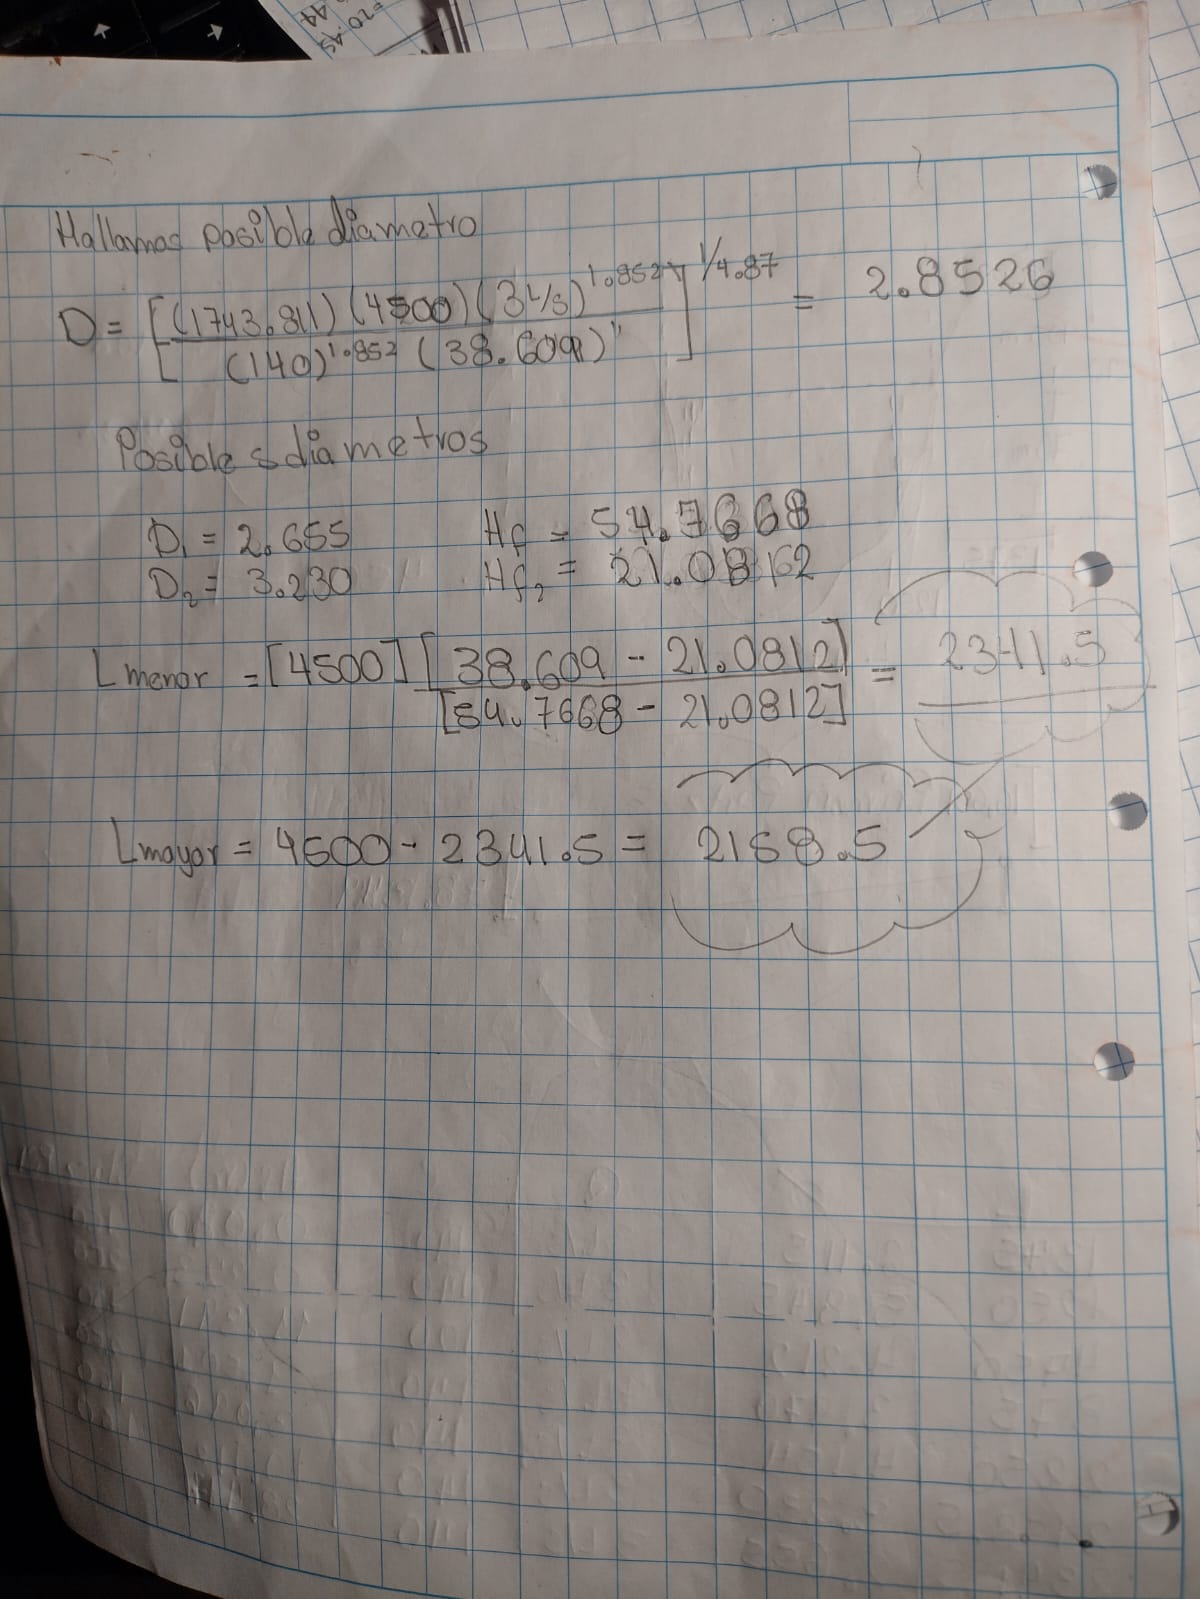 Hallamos posible diametro
D = [(1743.811) (4500) (3 L/s)^1.852 / (140)^1.852 (38.609)]^1/4.87 = 2.8526
Posibles diametros
D₁ = 2.655 Hf = 54.7668
D₂ = 3.230 Hf₂ = 21.08162
Lmenor = [4500] [38.609 - 21.0812] / [54.7668 - 21.0812] = 2341.5
Lmayor = 4500 - 2341.5 = 2158.5